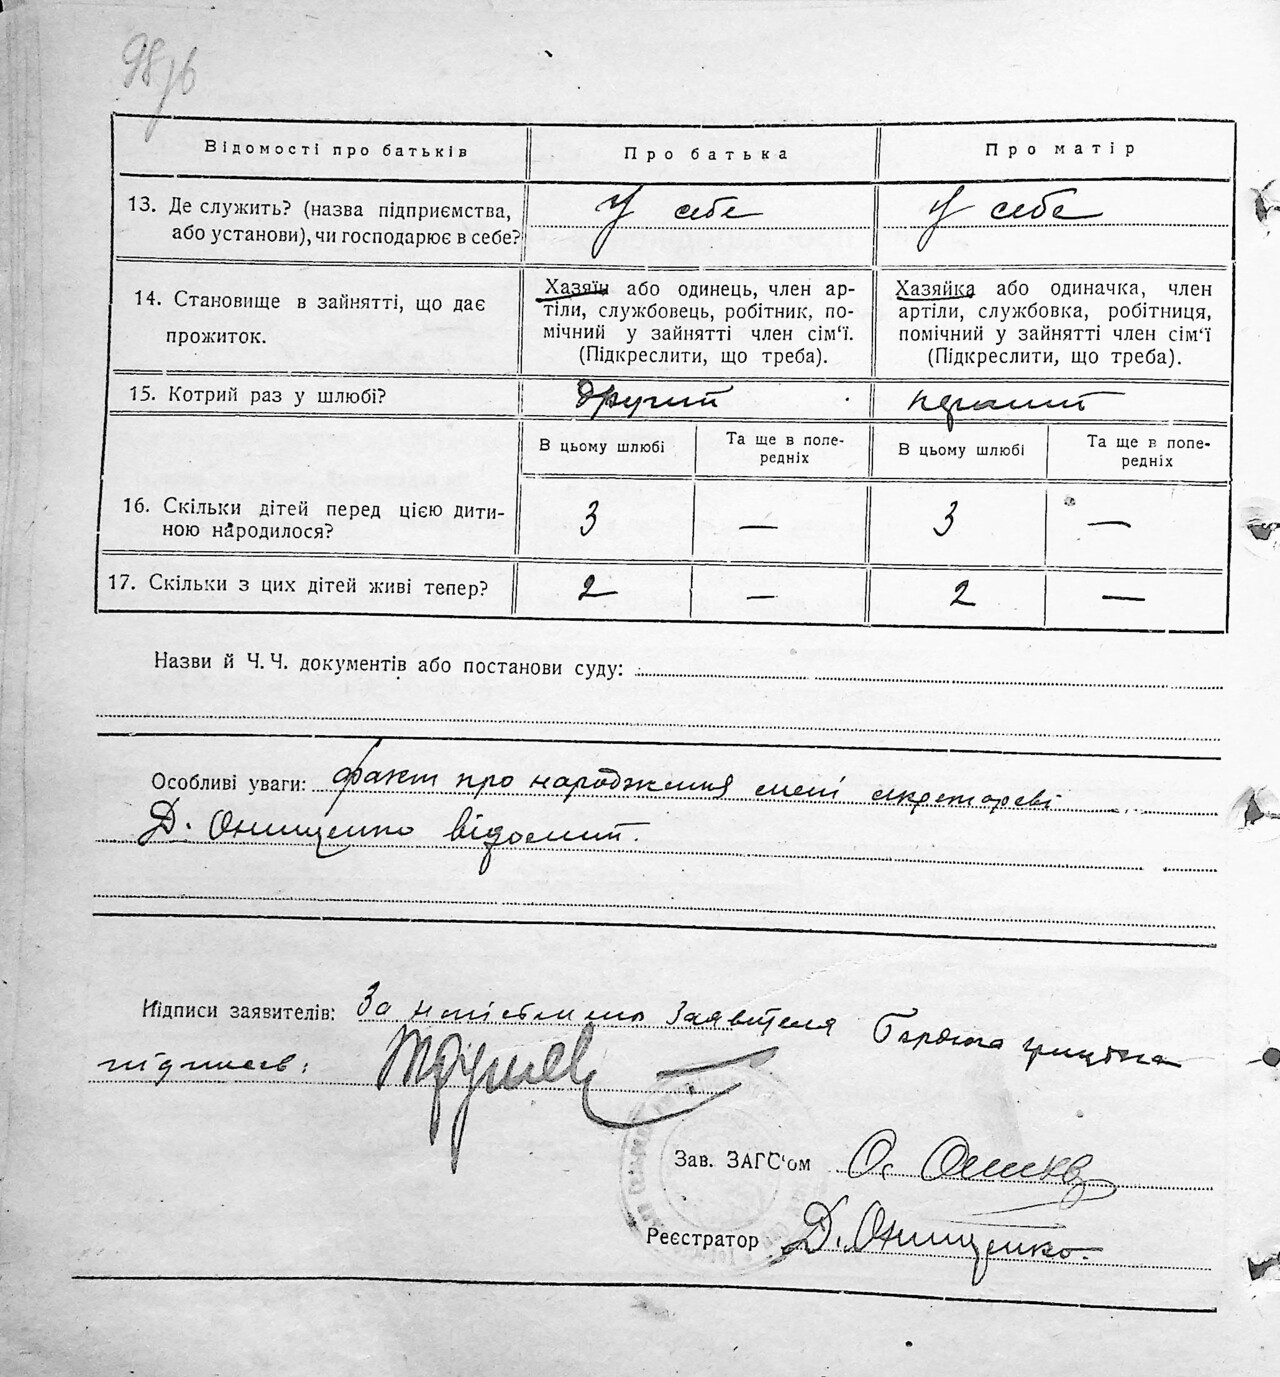 98зв
Відомості про батьків
Про батька
Про матір
13. Де служить? (назва підприємства,
або установи), чи господарює в себе?
У себе
У себе
14. Становище в зайнятті, що дає
прожиток.
Хазяїн або одинець, член ар-
тіли, службовець, робітник, по-
мічний у зайнятті член сім'ї.
(Підкреслити, що треба).
Хазяйка або одиначка, член
артіли, службовка, робітниця,
помічний у зайнятті член сім'ї
(Підкреслити, що треба).
15. Котрий раз у шлюбі?
другий
перший
В цьому шлюбі
Та ще в попе-
редніх
В цьому шлюбі
Та ще в попе-
редніх
16. Скільки дітей перед цією дити-
ною народилося?
3
—
3
—
17. Скільки з цих дітей живі тепер?
2
—
2
—
Назви й Ч. Ч. документів або постанови суду:
Особливі уваги: факт про народження мені секретареві
Д. Онищенко відомий.
Підписи заявителів: За заявителя
підписав:
Зав. ЗАГС'ом О.
Реєстратор Д. Онищенко.